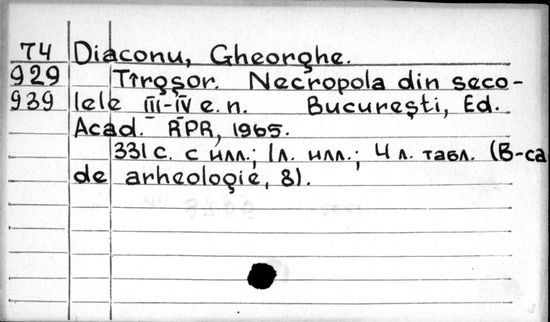 74 Diaconu, Gheorghe.
929 Tîrgşor. Necropola din seco-
939 lele III-IV e. n. Bucureşti, Ed.
Acad. RPR, 1965.
331 с. с илл.; 1 л. илл.; 4 л. табл. (B-ca
de arheologie, 8).